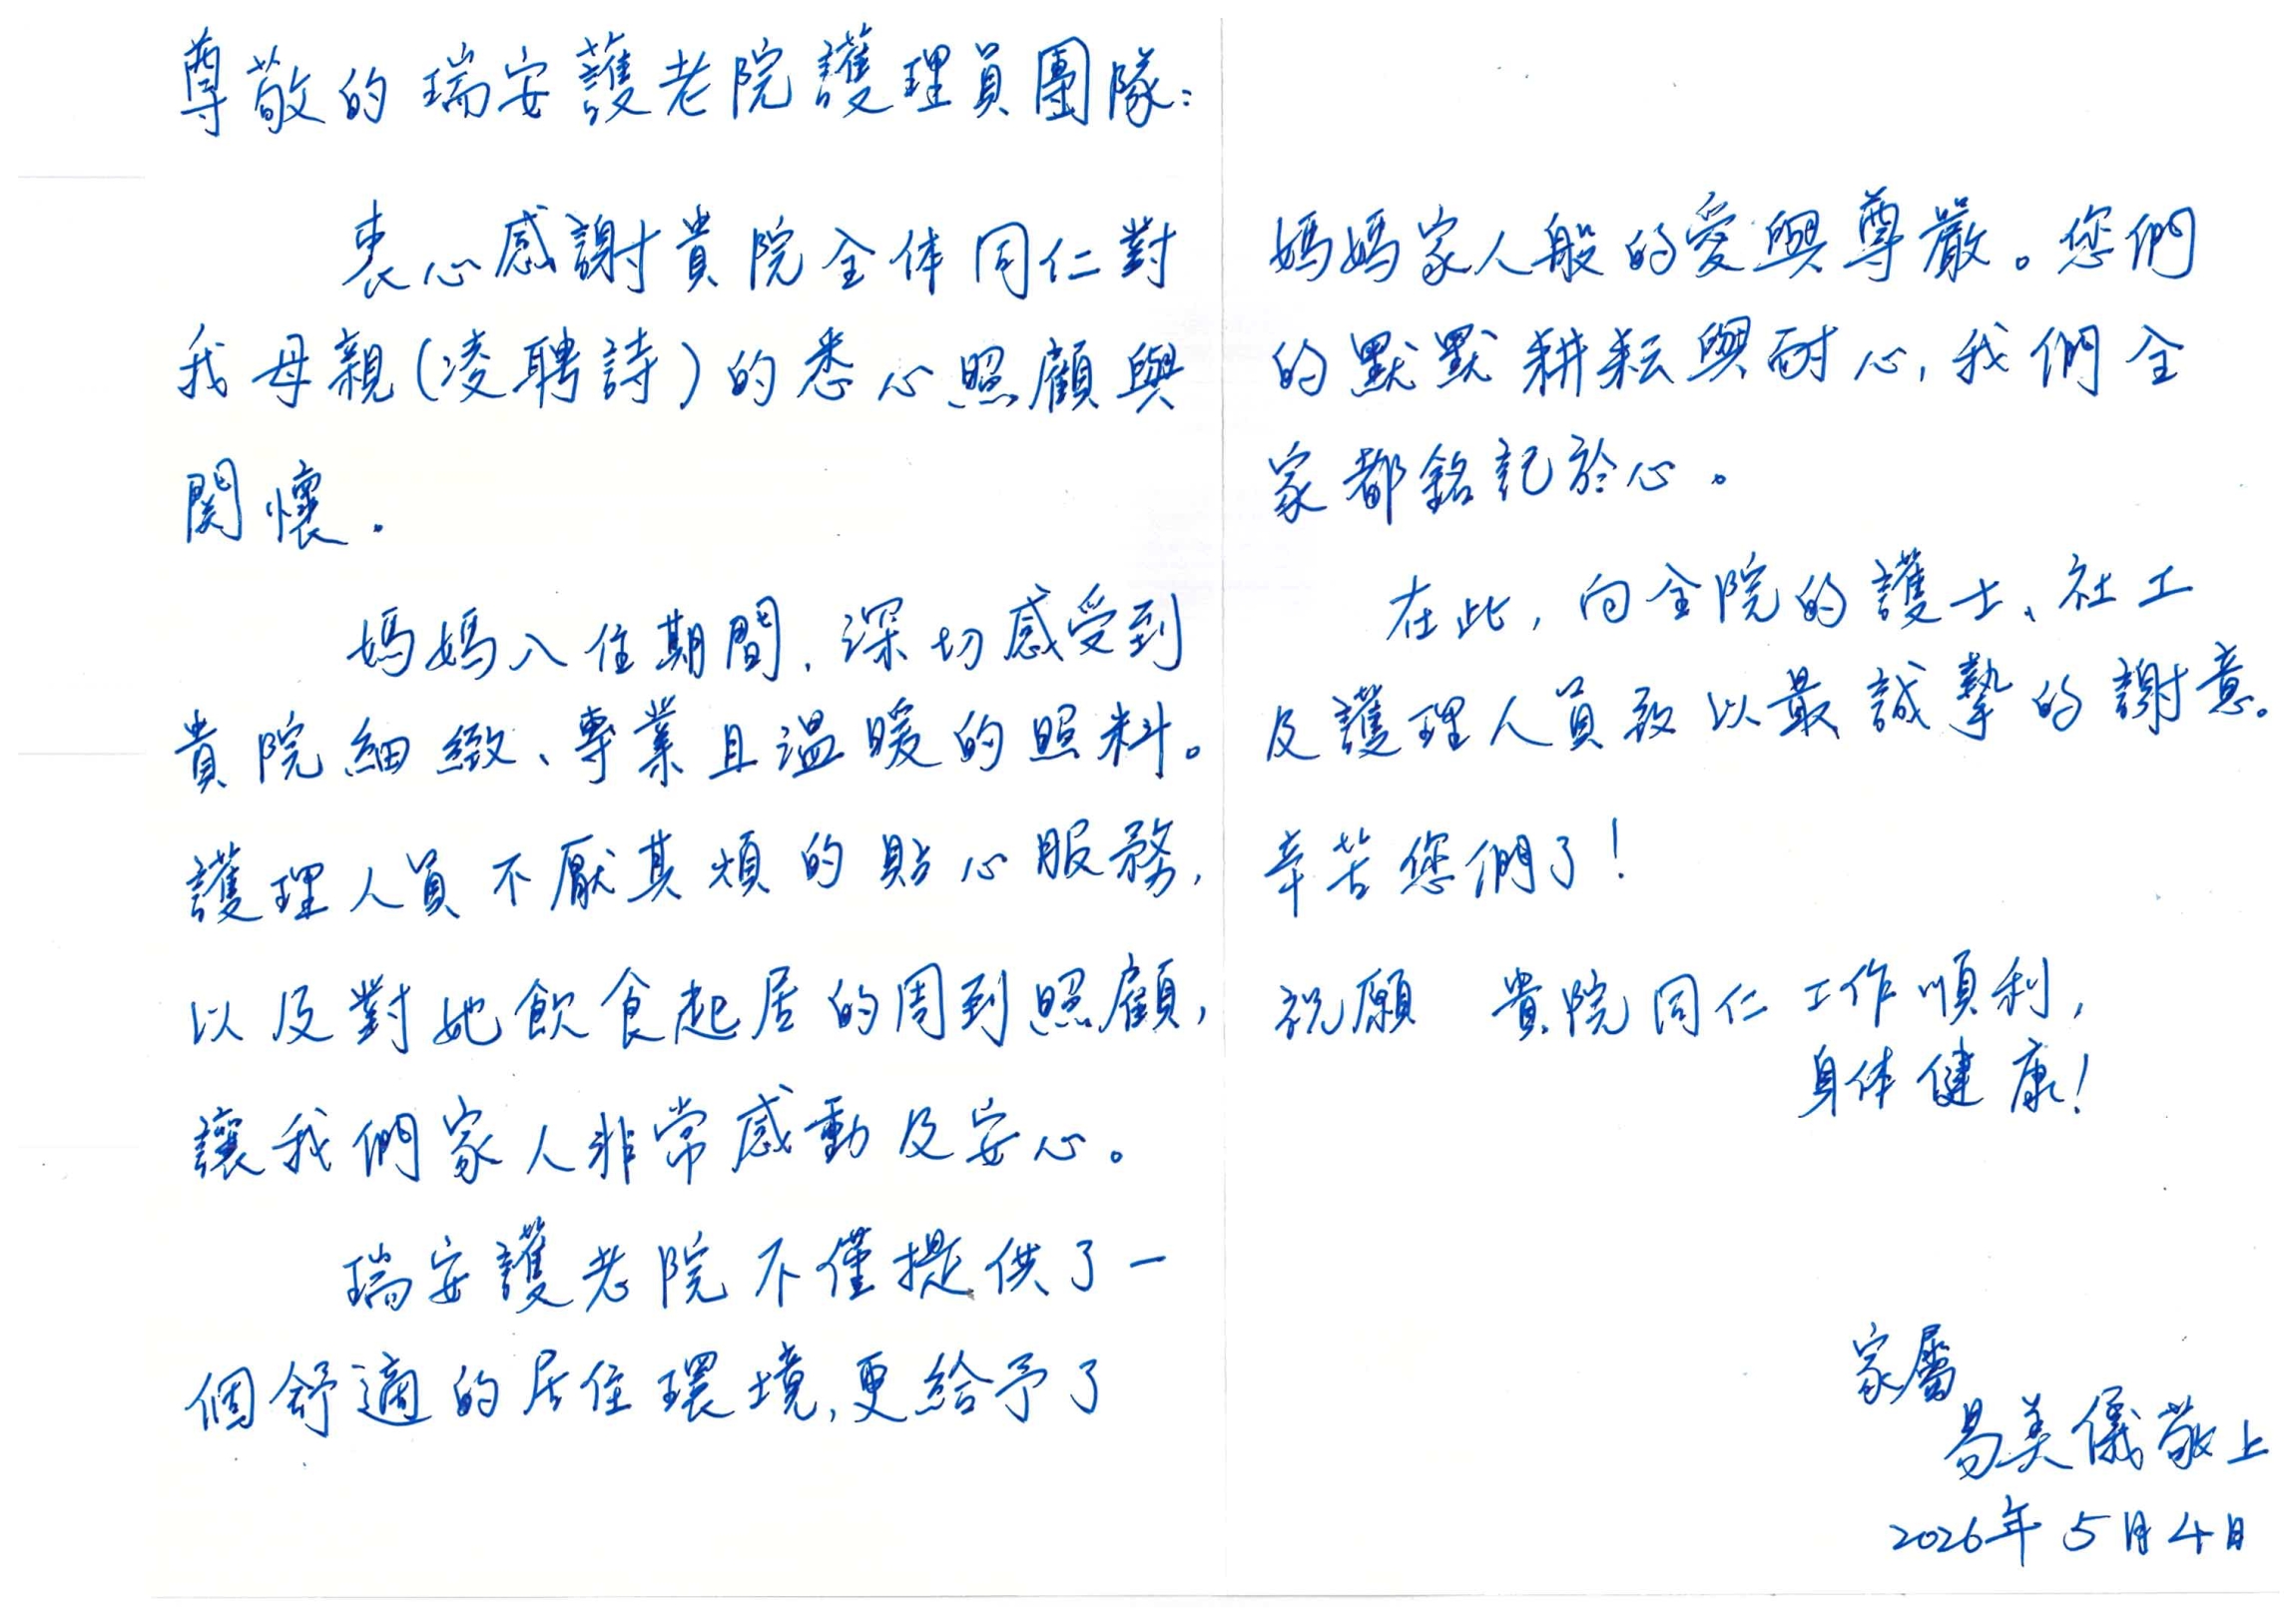 尊敬的瑞安護老院護理員團隊:
衷心感謝貴院全体同仁對
我母親(凌聘詩)的悉心照顧與
関懷.
媽媽入住期間,深切感受到
貴院細緻、專業且溫暖的照料。
護理人員不厭其煩的貼心服務,
以及對她飲食起居的周到照顧,
讓我們家人非常感動及安心。
瑞安護老院不僅提供了一
個舒適的居住環境,更給予了
媽媽家人般的愛與尊嚴。您們
的默默耕耘與耐心,我們全
家都銘記於心。
在此,向全院的護士、社工
及護理人員致以最誠摯的謝意。
辛苦您們了!
祝願 貴院同仁工作順利,
身体健康!
家屬
易美儀敬上
2026年5月4日